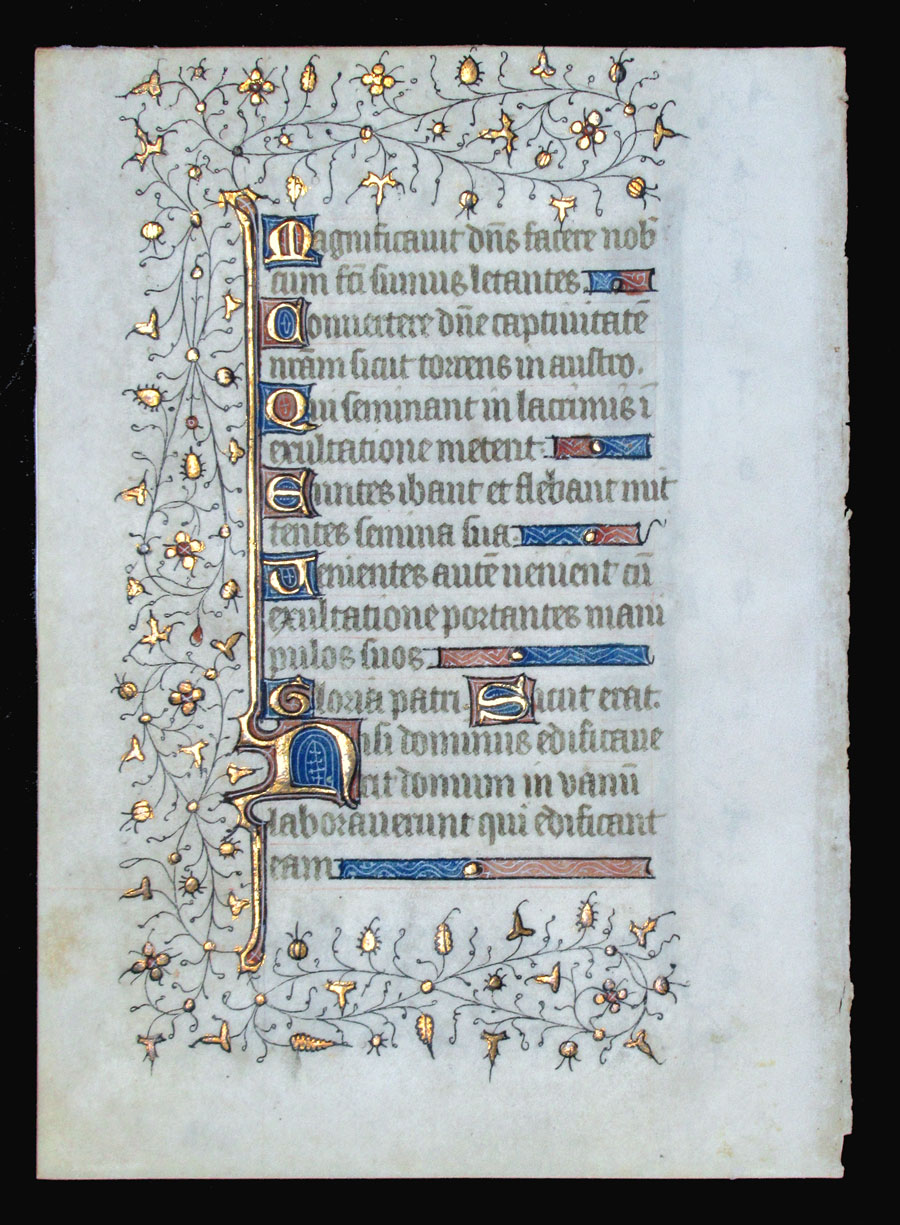 Magnificavit dn̄s facere nob̄
cum fc̄i sumus letantes
Convertere dn̄e captivitatē
nr̄am sicut torrens in austro.
Qui seminant in lacrimis ī
exultatione metent.
Euntes ibant et flebant mit
tentes semina sua.
Uenientes autē venient cū
exultatione portantes mani
pulos suos
Gloria patri. Sicut erat.
Nisi dominus edificave
rit domum in vanū
laboraverunt qui edificant
eam